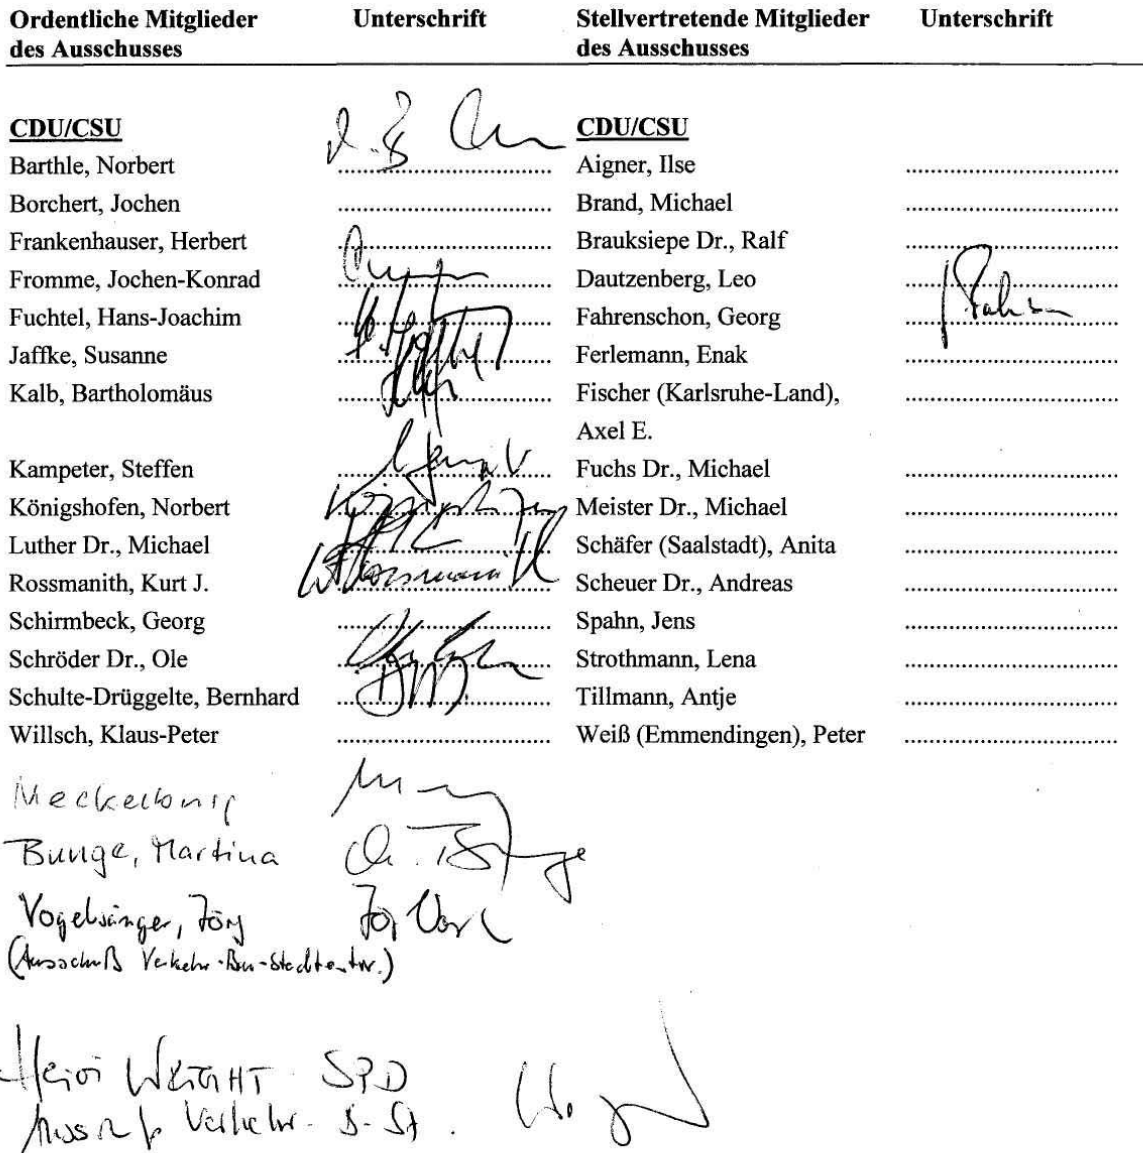 Ordentliche Mitglieder Unterschrift Stellvertretende Mitglieder Unterschrift
des Ausschusses des Ausschusses
CDU/CSU CDU/CSU
Barthle, Norbert Aigner, Ilse
Borchert, Jochen Brand, Michael
Frankenhauser, Herbert Brauksiepe Dr., Ralf
Fromme, Jochen-Konrad Dautzenberg, Leo
Fuchtel, Hans-Joachim Fahrenschon, Georg
Jaffke, Susanne Ferlemann, Enak
Kalb, Bartholomäus Fischer (Karlsruhe-Land),
Axel E.
Kampeter, Steffen Fuchs Dr., Michael
Königshofen, Norbert Meister Dr., Michael
Luther Dr., Michael Schäfer (Saalstadt), Anita
Rossmanith, Kurt J. Scheuer Dr., Andreas
Schirmbeck, Georg Spahn, Jens
Schröder Dr., Ole Strothmann, Lena
Schulte-Drüggelte, Bernhard Tillmann, Antje
Willsch, Klaus-Peter Weiß (Emmendingen), Peter
Bunge, Martina
Vogelsänger, Jörg
(Ausschuß Verkehr-Bau-Stadtentw.)
Heidi WRIGHT SPD
Verkehr